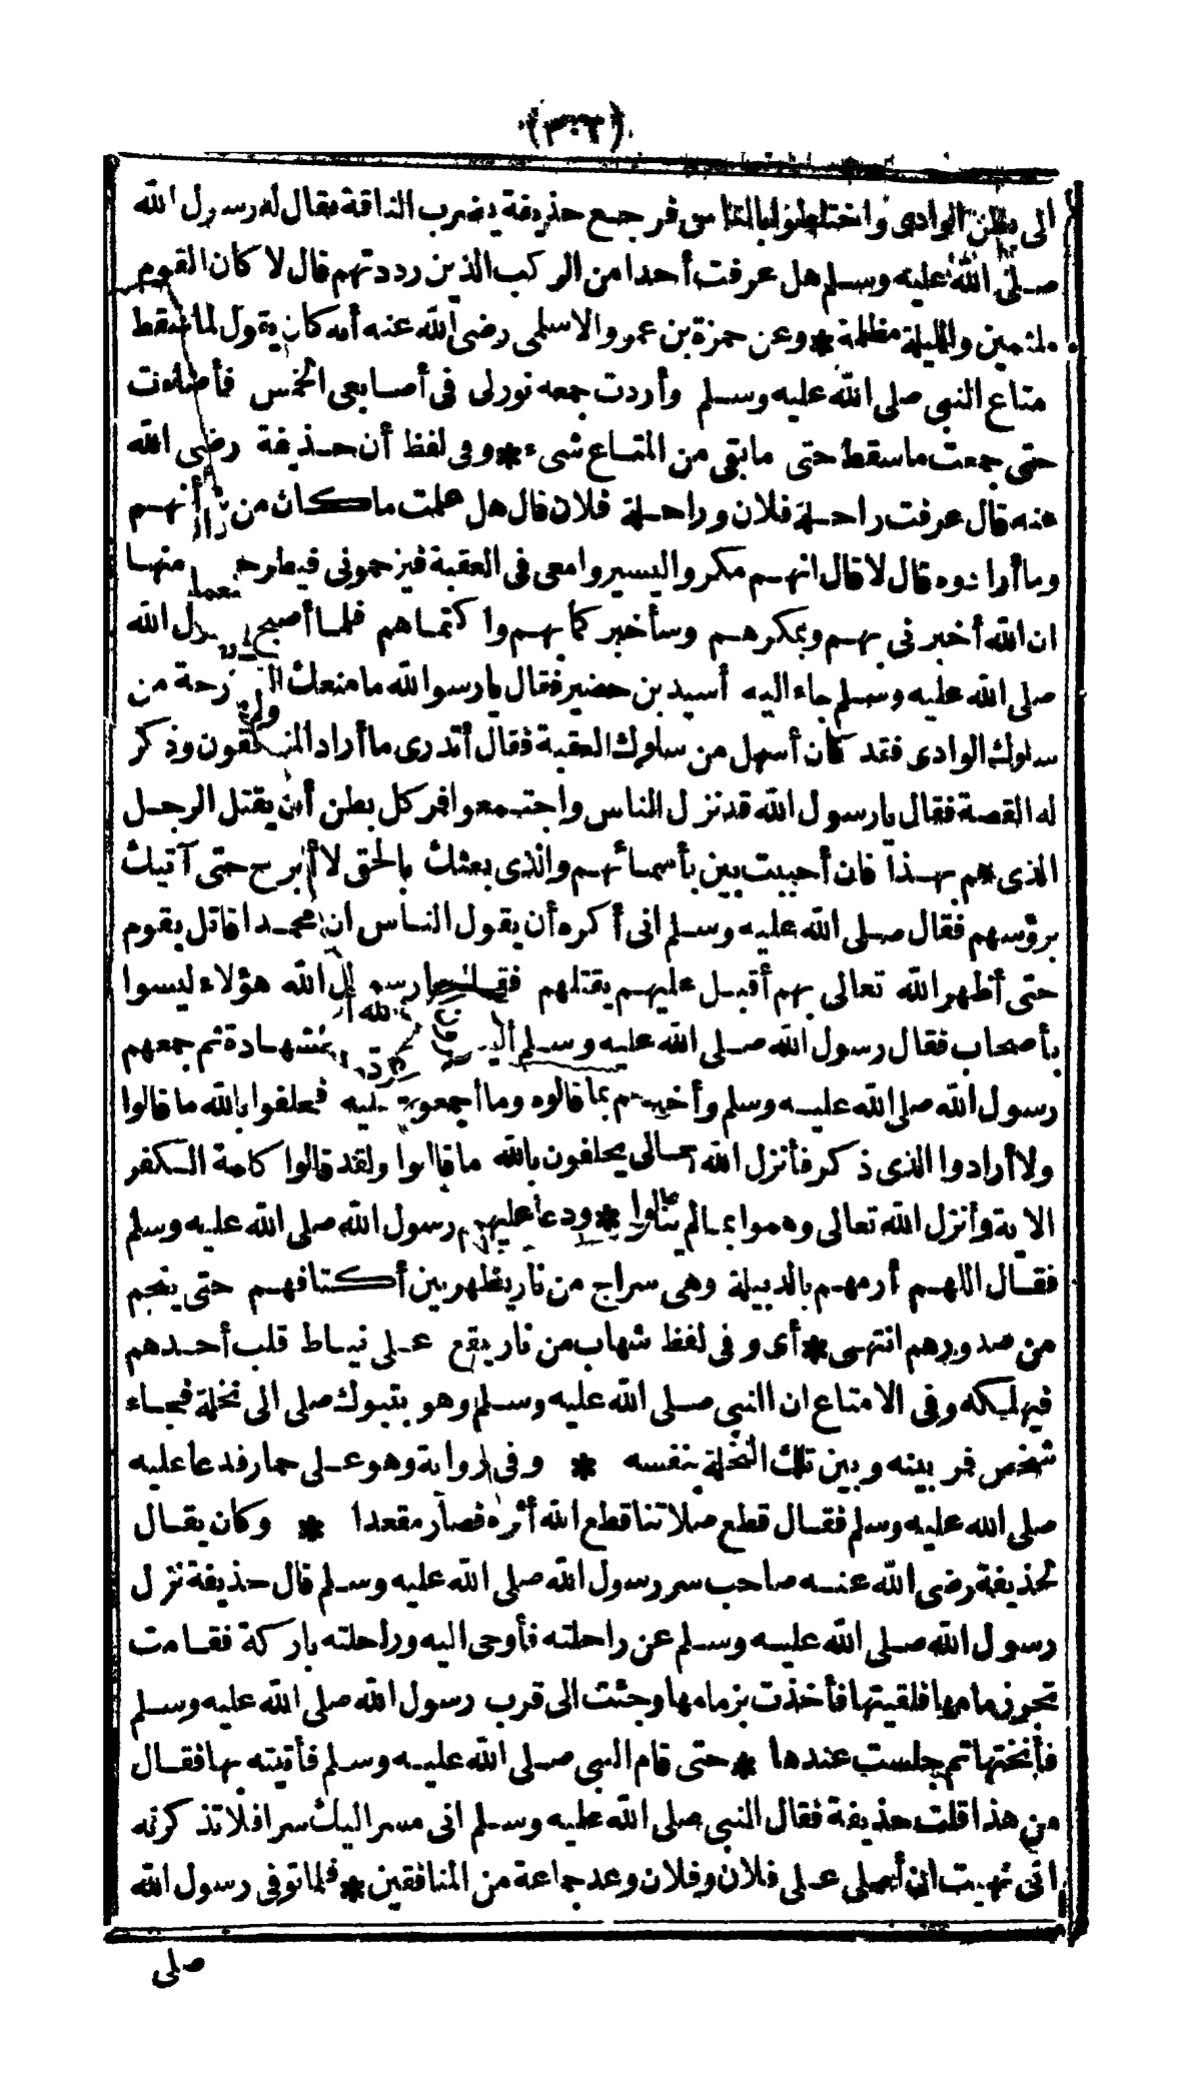 (٣٠٢)
الى بطن الوادى واختلطوا بالناس فرجع حذيفة يضرب الناقة فقال له رسول الله
صلى الله عليه وسلم هل عرفت أحدا من الركب الذين رددتهم قال لا كان القوم
ملثمين والليلة مظلمة * وعن حمزة بن عمرو الاسلمى رضى الله عنه أنه كان يقول لما سقط
متاع النبى صلى الله عليه وسلم وأردت جمعه نورلى فى أصابعى الخمس فأضاءت
حتى جمعت ما سقط حتى ما بقى من المتاع شىء * وفى لفظ أن حذيفة رضى الله
عنه قال عرفت راحلة فلان وراحلة فلان قال هل علمت ما كان من شأنهم
وما أرادوه قال لا قال انهم مكروا ليسيروا معى فى العقبة فيزحمونى فيطرحونى منها
ان الله أخبرنى بهم وبمكرهم وسأخبركما بهم واكتماهم فلما أصبح رسول الله
صلى الله عليه وسلم جاء اليه أسيد بن حضير فقال يا رسول الله ما منعك البارحة من
سلوك الوادى فقد كان أسهل من سلوك العقبة فقال أتدرى ما أراد المنافقون وذكر
له القصة فقال يا رسول الله قد نزل الناس واجتمعوا فمر كل بطن أن يقتل الرجل
الذى هم بهذا فان أحببت بين بأسمائهم والذى بعثك بالحق لا أبرح حتى آتيك
برؤسهم فقال صلى الله عليه وسلم انى أكره أن يقول الناس ان محمدا قاتل بقوم
حتى أظهره الله تعالى بهم أقبل عليهم يقتلهم فقال يا رسول الله هؤلاء ليسوا
بأصحاب فقال رسول الله صلى الله عليه وسلم أليس يظهرون الشهادة ثم جمعهم
رسول الله صلى الله عليه وسلم وأخبرهم بما قالوه وما أجمعوا عليه فحلفوا بالله ما قالوا
ولا أرادوا الذى ذكر فأنزل الله تعالى يحلفون بالله ما قالوا ولقد قالوا كلمة الكفر
الاية وأنزل الله تعالى وهموا بما لم ينالوا * ودعا عليهم رسول الله صلى الله عليه وسلم
فقال اللهم أرمهم بالدبيلة وهى سراج من نار يظهر بين أكتافهم حتى ينجم
من صدورهم انتهى * أى وفى لفظ شهاب من نار يقع على نياط قلب أحدهم
فيهلكه وفى الامتاع ان النبى صلى الله عليه وسلم وهو بتبوك صلى الى نخلة فجاء
شخص فمر بينه وبين تلك النخلة بنفسه * وفى رواية وهو على حمار فدعا عليه
صلى الله عليه وسلم فقال قطع صلاتنا قطع الله أثره فصار مقعدا * وكان يقال
لحذيفة رضى الله عنه صاحب سر رسول الله صلى الله عليه وسلم قال حذيفة نزل
رسول الله صلى الله عليه وسلم عن راحلته فأوحى اليه وراحلته باركة فقامت
تجر زمامها فلقيتها فأخذت بزمامها وجئت الى قرب رسول الله صلى الله عليه وسلم
فأنختها ثم جلست عندها * حتى قام النبى صلى الله عليه وسلم فأتيته بها فقال
من هذا قلت حذيفة فقال النبى صلى الله عليه وسلم انى مسر اليك سرا فلا تذكرنه
انى نهيت ان أصلى على فلان وفلان وعد جماعة من المنافقين * فلما توفى رسول الله
صلى